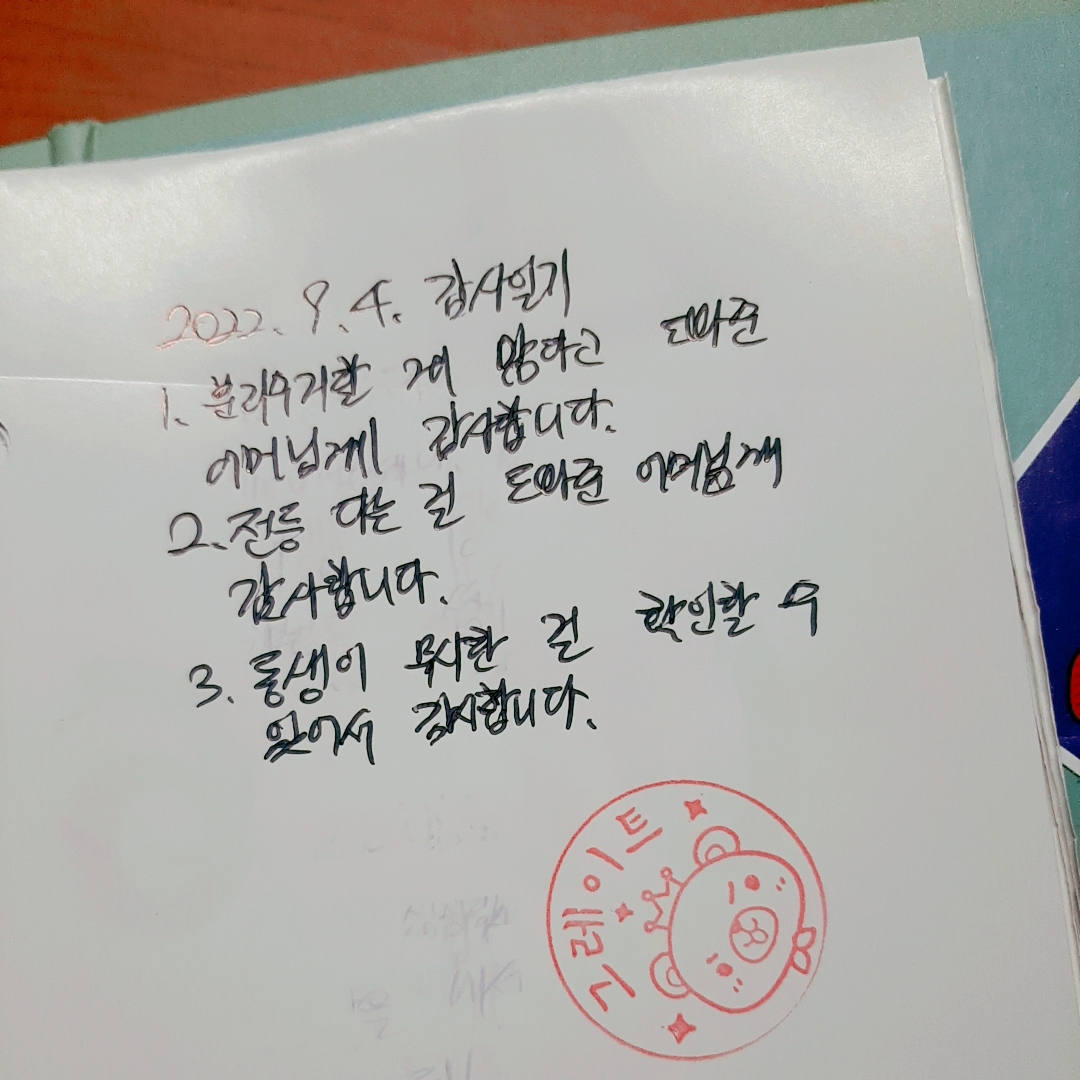 2022. 9. 4. 감사일기
1. 분리수거할 게 많다고 도와준
어머님께 감사합니다.
2. 전등 다는 걸 도와준 어머님께
감사합니다.
3. 동생이 무시한 걸 확인할 수
있어서 감사합니다.
그레이트